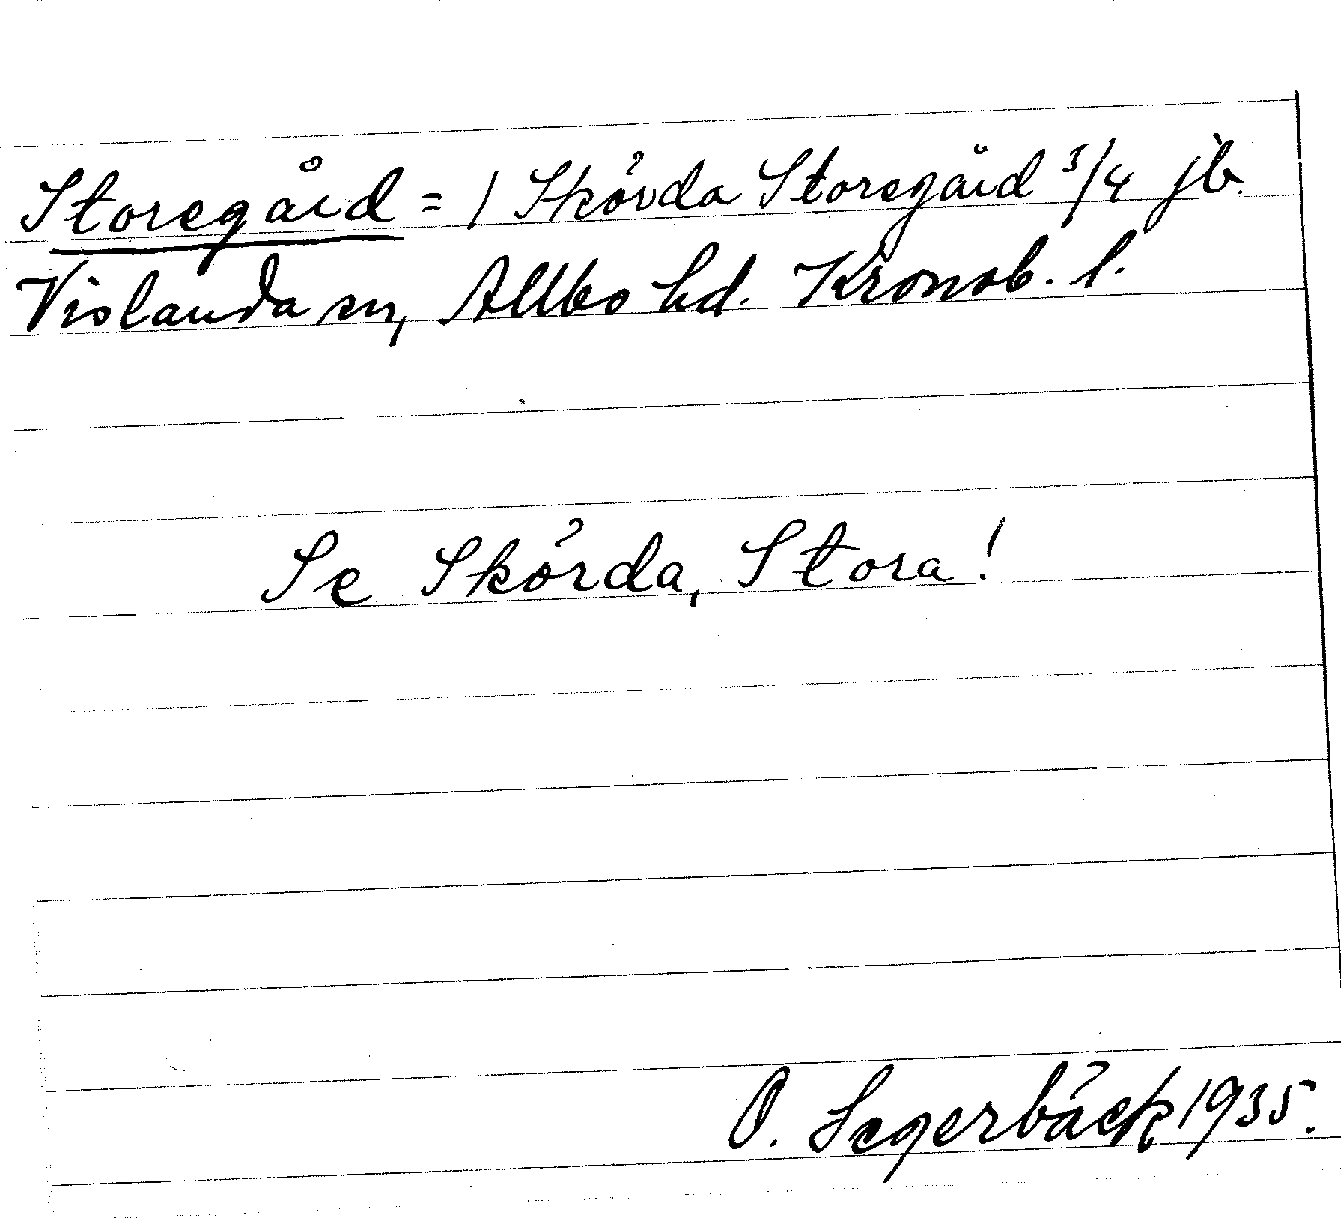 Storegård = 1 Skörda Storegård 3/4 jb.
Vislanda sn, Allbo hd. Kronob. l.
Se Skörda, Stora!
O. Segerbäck 1935.